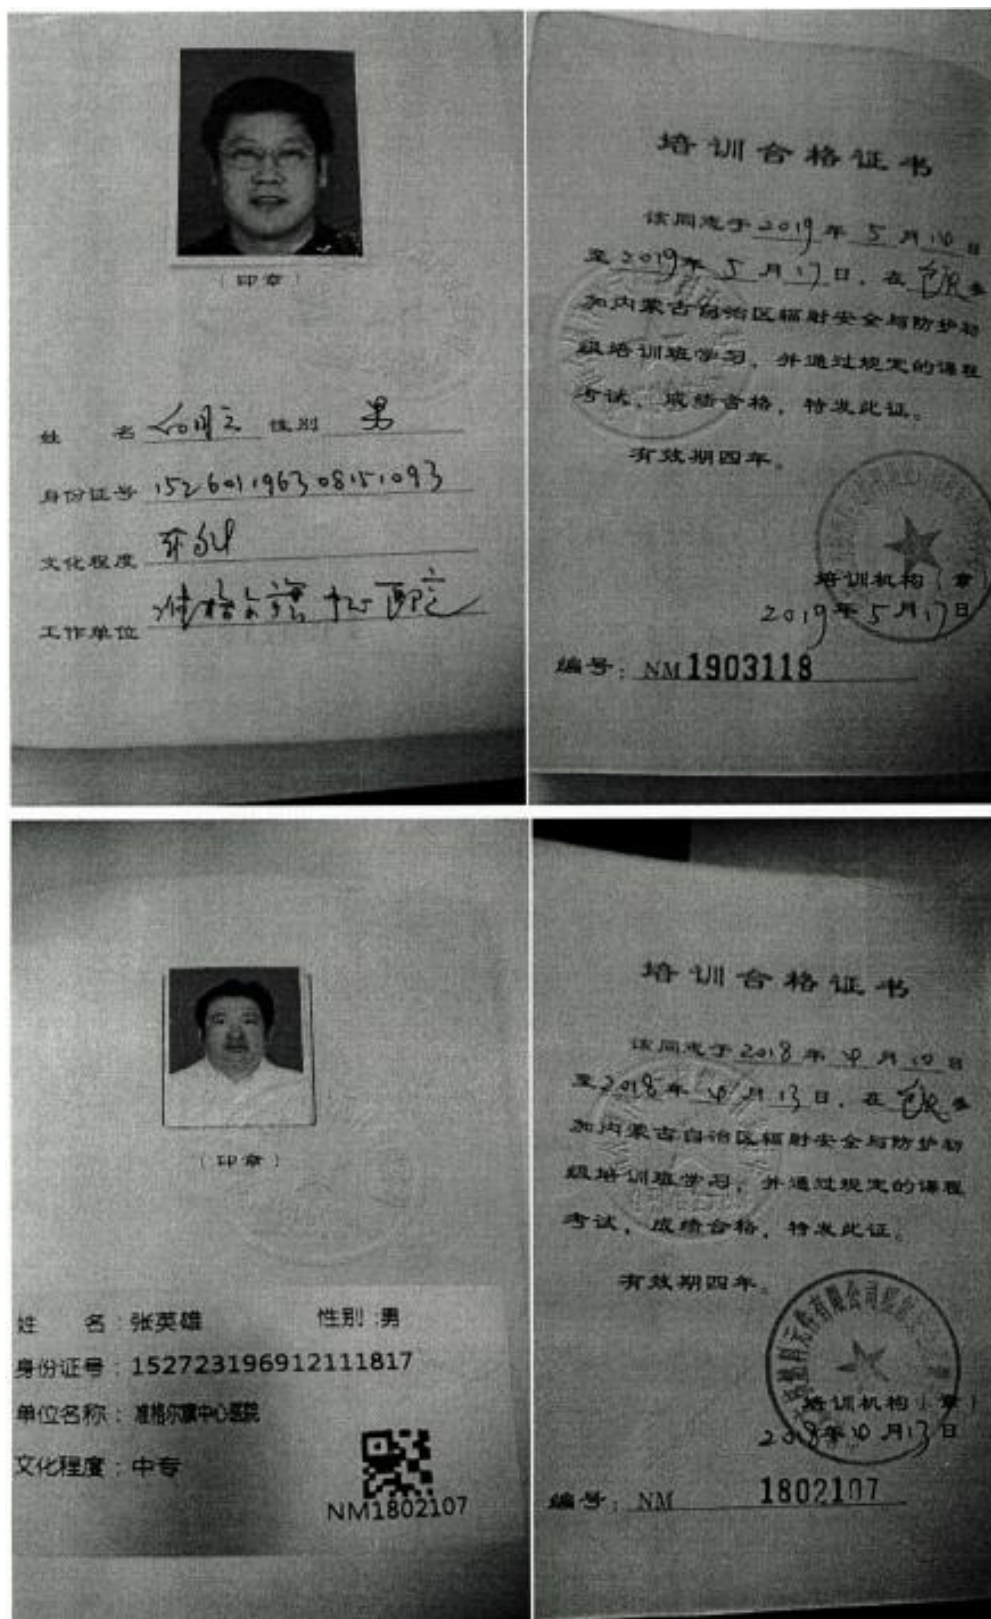 (印章)
姓 名 性别 男
身份证号 152601196308151093
文化程度
工作单位 准格尔旗中心医院
培训合格证书
该同志于2019年5月14日
至2019年5月17日,在包头参
加内蒙古自治区辐射安全与防护初
级培训班学习,并通过规定的课程
考试,成绩合格,特发此证。
有效期四年。
培训机构(章)
2019年5月17日
编号:NM 1903118
(印章)
姓 名:张英雄 性别:男
身份证号:152723196912111817
单位名称:准格尔旗中心医院
文化程度:中专
NM1802107
培训合格证书
该同志于2018年4月10日
至2018年4月13日,在包头参
加内蒙古自治区辐射安全与防护初
级培训班学习,并通过规定的课程
考试,成绩合格,特发此证。
有效期四年。
培训机构(章)
编号:NM 1802107